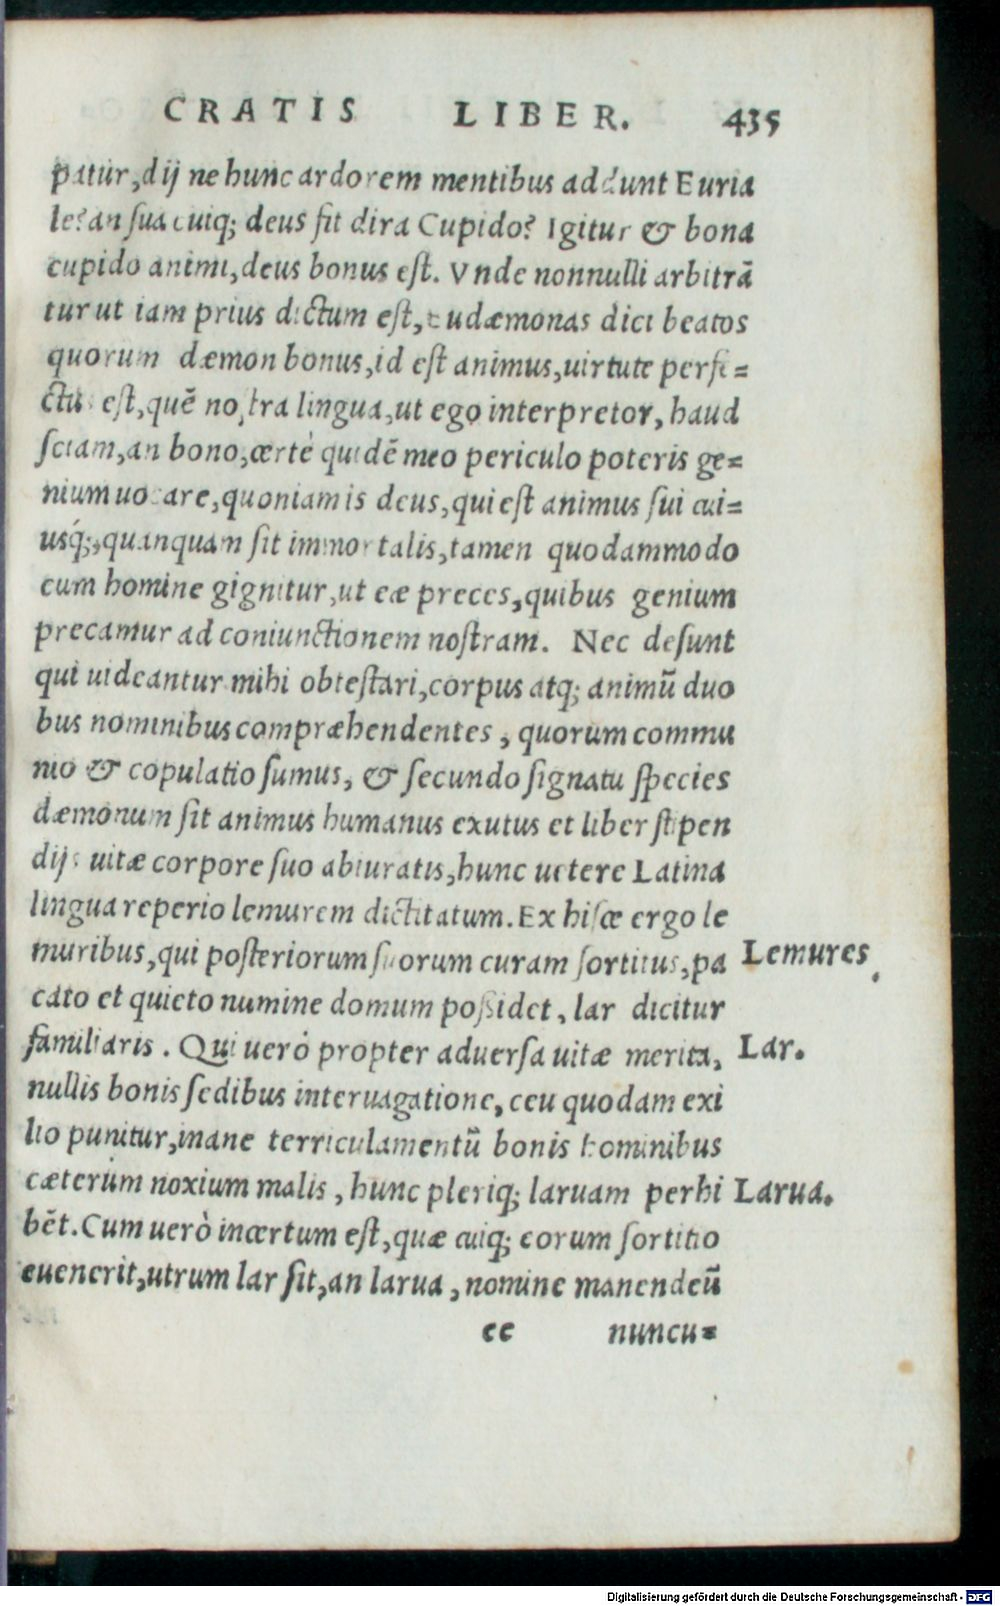 CRATIS LIBER. 435
patur, dij ne hunc ardorem mentibus addunt Euria
le? an sua cuiq; deus fit dira Cupido? Igitur & bona
cupido animi, deus bonus est. Vnde nonnulli arbitrā
tur ut iam prius dictum est, eudæmonas dici beatos
quorum dæmon bonus, id est animus, uirtute perfe=
ctus est, quē nostra lingua, ut ego interpretor, haud
sciam, an bono, certè quidē meo periculo poteris ge=
nium uocare, quoniam is deus, qui est animus sui cui=
usq́;, quanquam sit immortalis, tamen quodammodo
cum homine gignitur, ut eæ preces, quibus genium
precamur ad coniunctionem nostram. Nec desunt
qui uideantur mihi obtestari, corpus atq; animū duo
bus nominibus compræhendentes, quorum commu
nio & copulatio sumus, & secundo signatu species
dæmonum sit animus humanus exutus et liber stipen
dijs uitæ corpore suo abiuratis, hunc uetere Latina
lingua reperio lemurem dictitatum. Ex hisce ergo le
muribus, qui posteriorum suorum curam sortitus, pa
Lemures.
cato et quieto numine domum possidet, lar dicitur
familiaris. Qui uerò propter aduersa uitæ merita,
Lar.
nullis bonis sedibus interuagatione, ceu quodam exi
lio punitur, inane terriculamentū bonis hominibus
cæterùm noxium malis, hunc pleriq; laruam perhi
Larua.
bēt. Cum uerò incertum est, quæ cuiq; eorum sortitio
euenerit, utrum lar sit, an larua, nomine manendeū
ee nuncu=
Digitalisierung gefördert durch die Deutsche Forschungsgemeinschaft - DFG